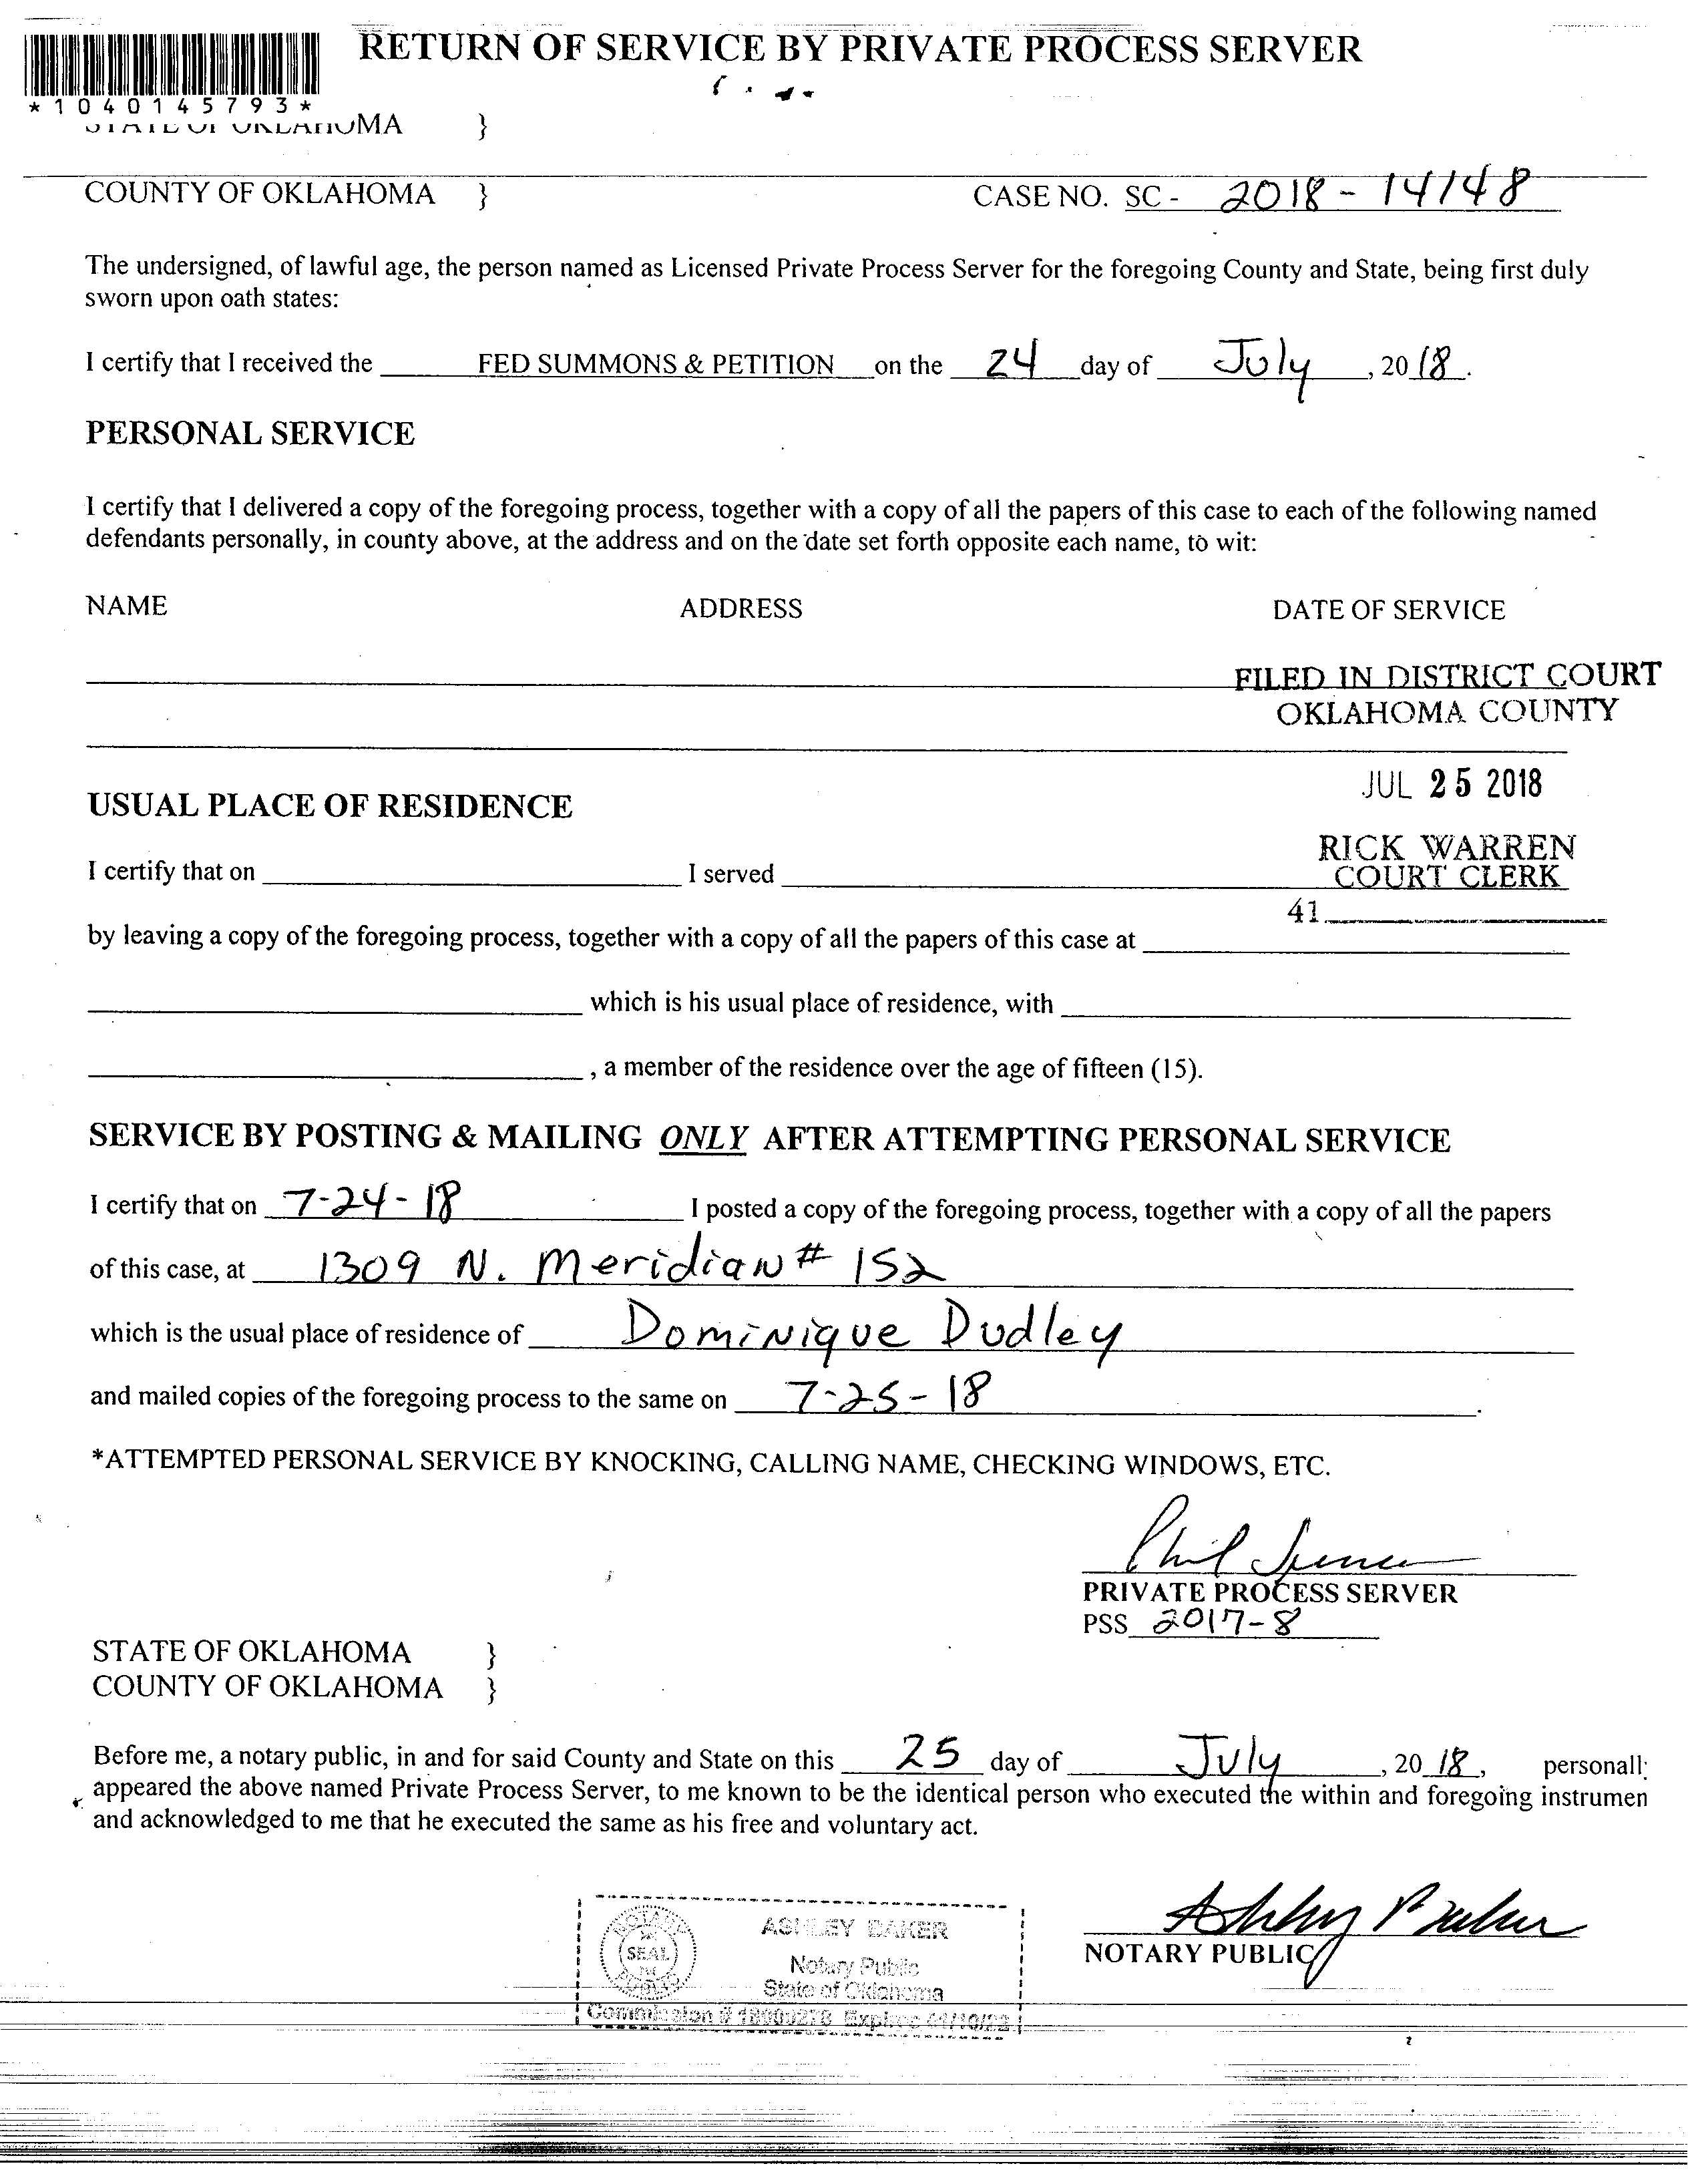 RETURN OF SERVICE BY PRIVATE PROCESS SERVER
*1040145793*
STATE OF OKLAHOMA }
COUNTY OF OKLAHOMA } CASE NO. SC - 2018 - 14148
The undersigned, of lawful age, the person named as Licensed Private Process Server for the foregoing County and State, being first duly
sworn upon oath states:
I certify that I received the FED SUMMONS & PETITION on the 24 day of July , 20 18 .
PERSONAL SERVICE
I certify that I delivered a copy of the foregoing process, together with a copy of all the papers of this case to each of the following named
defendants personally, in county above, at the address and on the date set forth opposite each name, to wit:
NAME ADDRESS DATE OF SERVICE
FILED IN DISTRICT COURT
OKLAHOMA COUNTY
JUL 25 2018
USUAL PLACE OF RESIDENCE
RICK WARREN
COURT CLERK
I certify that on I served
41
by leaving a copy of the foregoing process, together with a copy of all the papers of this case at
which is his usual place of residence, with
, a member of the residence over the age of fifteen (15).
SERVICE BY POSTING & MAILING ONLY AFTER ATTEMPTING PERSONAL SERVICE
I certify that on 7-24-18 I posted a copy of the foregoing process, together with a copy of all the papers
of this case, at 1309 N. Meridian # 152
which is the usual place of residence of Dominique Dudley
and mailed copies of the foregoing process to the same on 7-25-18 .
*ATTEMPTED PERSONAL SERVICE BY KNOCKING, CALLING NAME, CHECKING WINDOWS, ETC.
Phil Spencer
PRIVATE PROCESS SERVER
PSS 2017-8
STATE OF OKLAHOMA }
COUNTY OF OKLAHOMA }
Before me, a notary public, in and for said County and State on this 25 day of July , 20 18 , personall
appeared the above named Private Process Server, to me known to be the identical person who executed the within and foregoing instrumen
and acknowledged to me that he executed the same as his free and voluntary act.
Ashley Baker
NOTARY PUBLIC
NOTARY
SEAL
PUBLIC
ASHLEY BAKER
Notary Public
State of Oklahoma
Commission # Expires